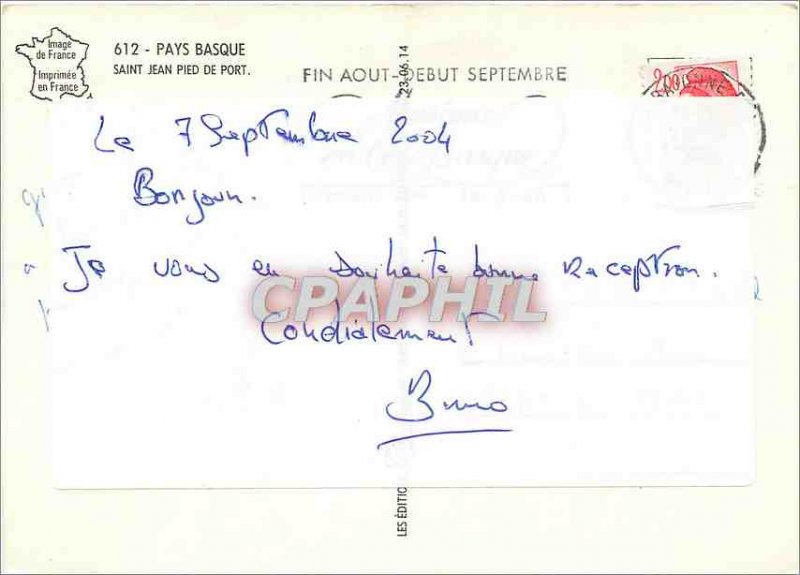 Image
de France
Imprimée
en France
612 - PAYS BASQUE
SAINT JEAN PIED DE PORT.
FIN AOUT-DEBUT SEPTEMBRE
23.06.14
2,00
BAYONNE
Le 7 Septembre 2004
Bonjour.
Je vous en souhaite bonne reception.
CPAPHIL
Cordialement
Bruno
LES ÉDITIO